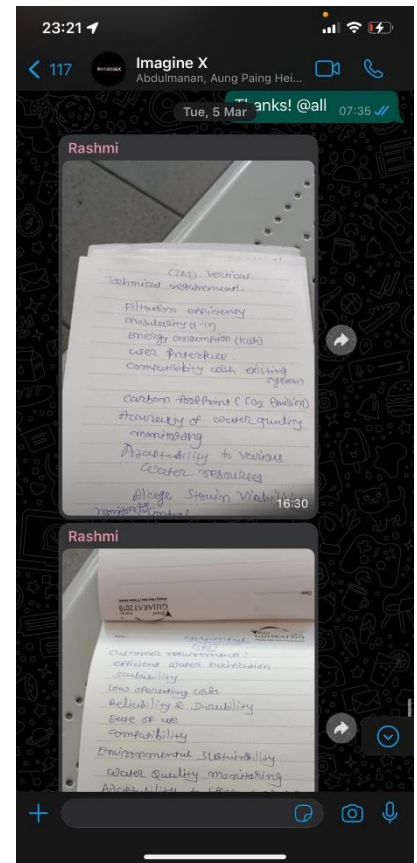 23:21
117
IMAGINEX
Imagine X
Abdulmanan, Aung Paing Hei...
Thanks! @all 07:35
Tue, 5 Mar
Rashmi
(TRS) Vertical.
Technical requirement.
Filtration efficiency
Modularity (1-10)
Energy consumption (kwh)
user Interface
compatibility with existing
system
carbon footprint (CO2 Emission)
Accuracy of water quality
monitoring
Adaptability to various
water resources
Algae Strain
16:30
Rashmi
GUJARAT 2019
GUJARAT 2019
(CRS)
Customer requirements:
efficient water Purification
scalability
Low operating costs
Reliability & Durability
Ease of use
compatibility
Environmental Sustainability
water Quality monitoring
Adaptability to